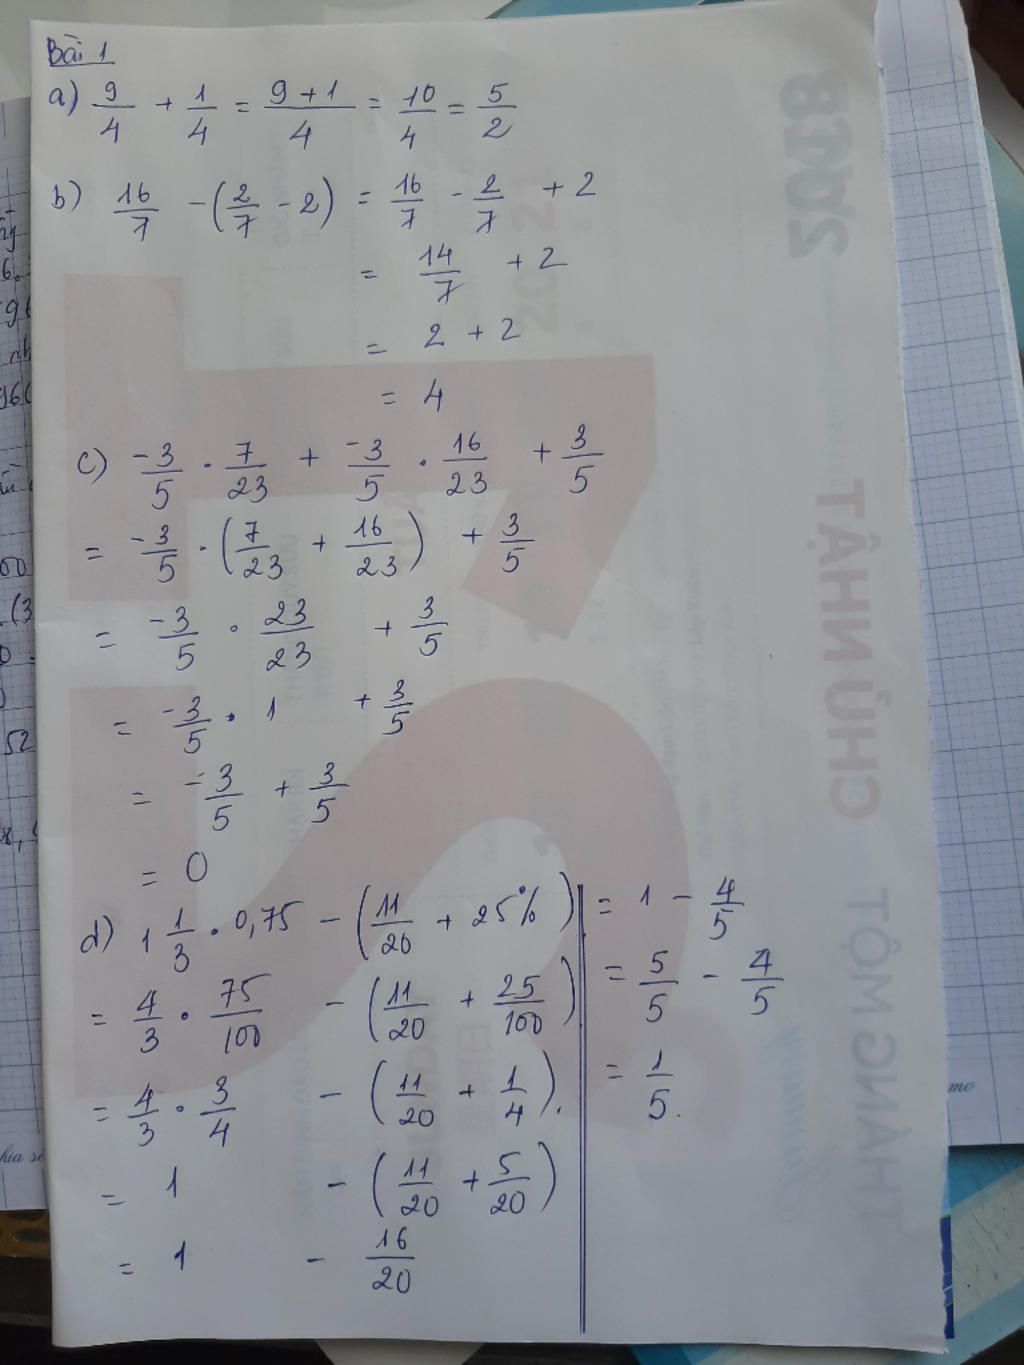 Bài 1
a) 9/4 + 1/4 = (9+1)/4 = 10/4 = 5/2
b) 16/7 - (2/7 - 2) = 16/7 - 2/7 + 2
= 14/7 + 2
= 2 + 2
= 4
c) -3/5 . 7/23 + -3/5 . 16/23 + 3/5
= -3/5 . (7/23 + 16/23) + 3/5
= -3/5 . 23/23 + 3/5
= -3/5 . 1 + 3/5
= -3/5 + 3/5
= 0
d) 1 1/3 . 0,75 - (11/20 + 25%)
= 4/3 . 75/100 - (11/20 + 25/100)
= 4/3 . 3/4 - (11/20 + 1/4).
= 1 - (11/20 + 5/20)
= 1 - 16/20
= 1 - 4/5
= 5/5 - 4/5
= 1/5.
2018
CHỦ NHẬT
THÁNG MỘT
January